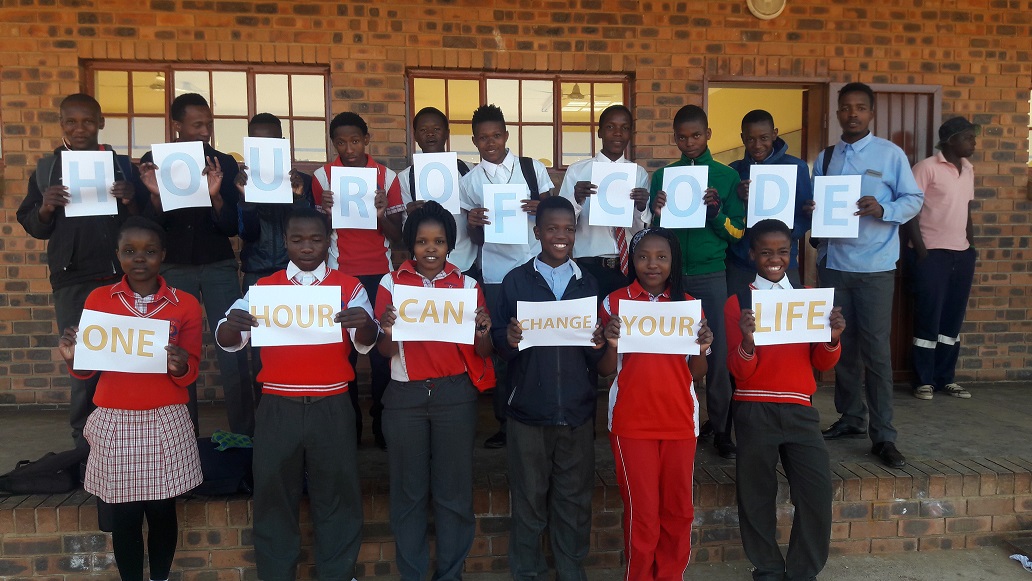 HOUR OF CODE
ONE HOUR CAN CHANGE YOUR LIFE